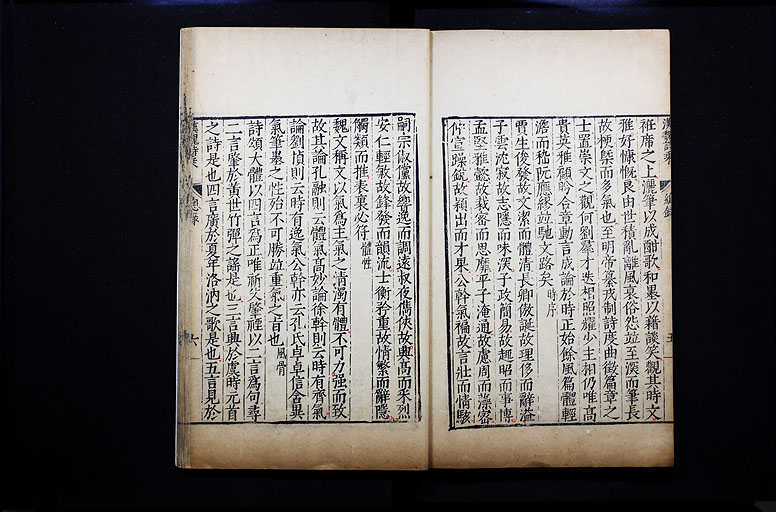 袵席之上灑筆以成酣歌和墨以藉談笑觀其時文
雅好慷慨良由世積亂離風衰俗怨竝至深而筆長
故梗槩而多氣也至明帝纂戎制詩度曲徵篇章之
士置崇文之觀何劉羣才迭相照耀少主相仍唯高
貴英雅顧盼合章動言成論於時正始餘風篇體輕
澹而嵇阮應繆竝馳文路矣 時序
賈生俊發故文潔而體清長卿傲誕故理侈而辭溢
子雲沈寂故志隱而味深子政簡易故趣昭而事博
孟堅雅懿故裁密而思靡平子淹通故慮周而藻密
仲宣躁銳故穎出而才果公幹氣褊故言壯而情駭
嗣宗俶儻故響逸而調遠叔夜儁俠故興高而采烈
安仁輕敏故鋒發而韻流士衡矜重故情繁而辭隱
觸類而推表裏必符 體性
魏文稱文以氣為主氣之清濁有體不可力强而致
故其論孔融則云體氣高妙論徐幹則云時有齊氣
論劉楨則云時有逸氣公幹亦云孔氏卓卓信含異
氣筆墨之性殆不可勝竝重氣之旨也 風骨
詩頌大體以四言為正唯祈父肇禋以二言為句尋
二言肇於黃世竹彈之謠是也三言興於虞時元首
之詩是也四言廣於夏年洛汭之歌是也五言見於